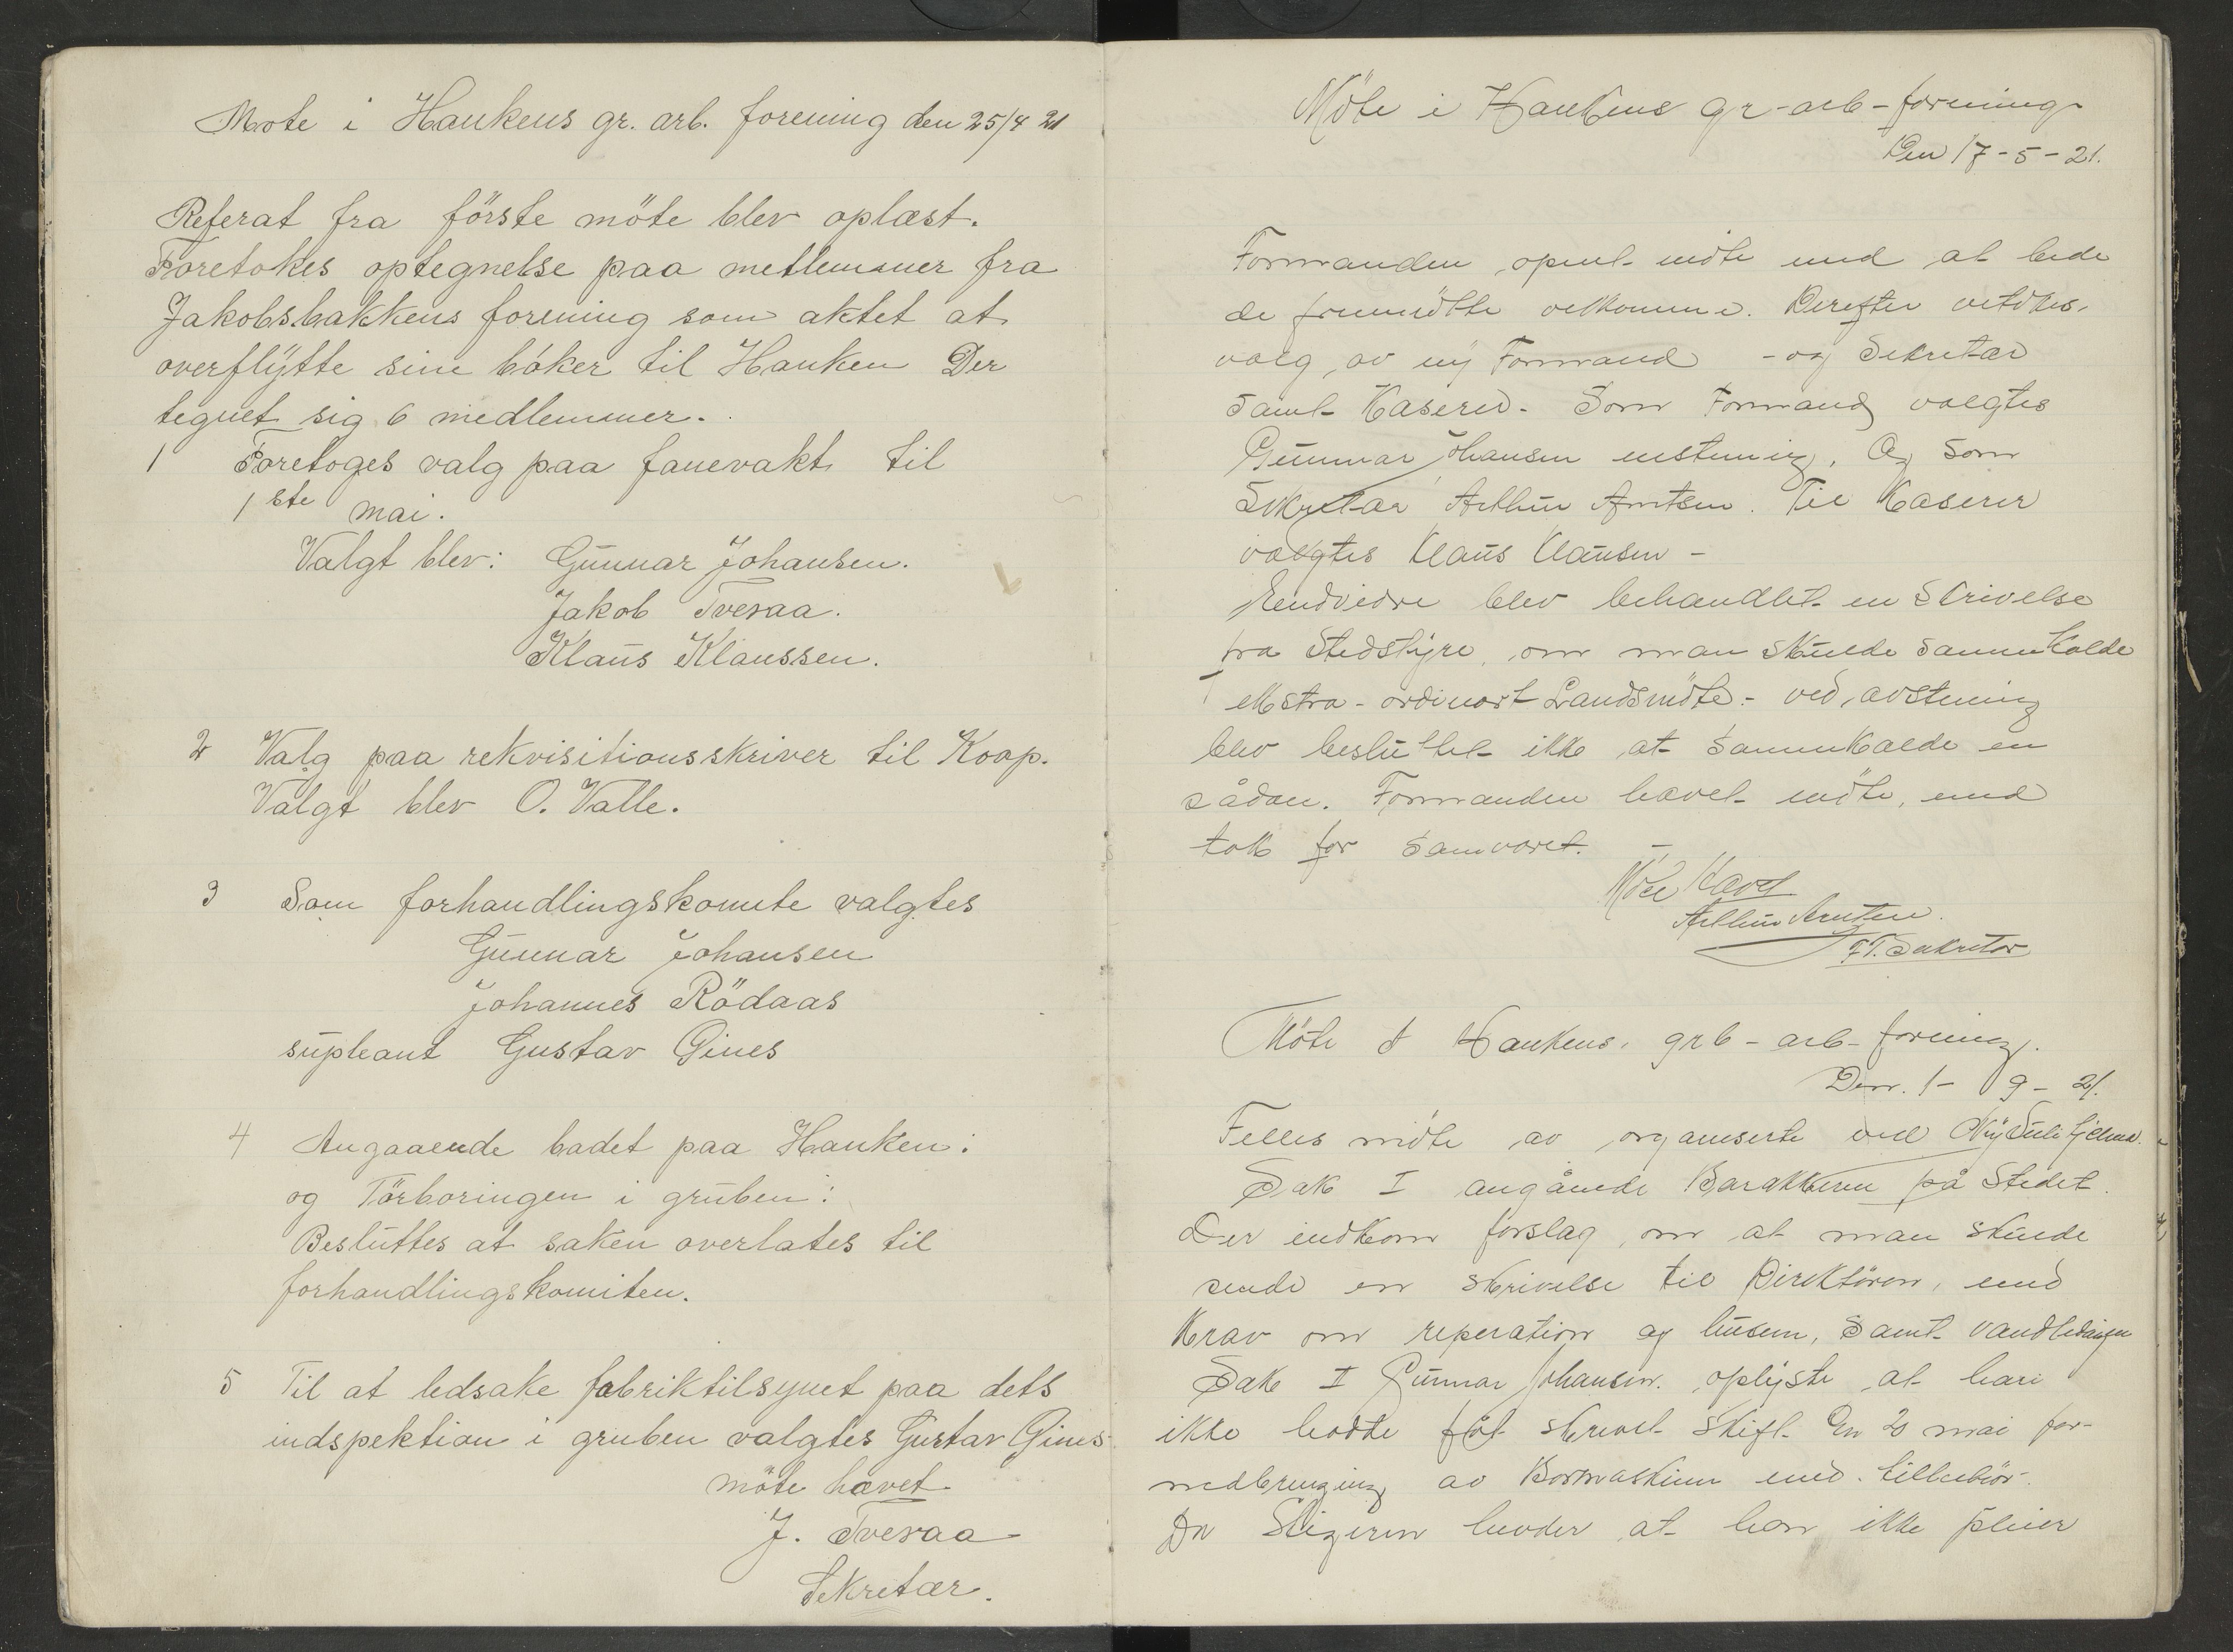 Möte i Hankens gr. arb. forening den 25/4 21
Referat fra förste möte blev oplæst.
Foretokes optegnelse paa metlemmer fra
Jakobsbakkens forening som aktet at
overflÿtte sine böker til Hanken Der
tegnet sig 6 medlemmer.
1 Foretoges valg paa fanevakt til
1ste mai.
Valgt blev: Gunnar Johansen.
Jakob Tveraa.
Klaus Klaussen.
2 Valg paa rekvisitionsskriver til Koop.
Valgt blev O. Valle.
3 Som forhandlingskomite valgtes
Gunnar Johansen
Johannes Rödaas
supleant Gustav Gines
4 Angaaende badet paa Hanken:
og Törboringen i gruben:
Besluttes at saken overlates til
forhandlingskomiten.
5 Til at ledsake fabriktilsynet paa dets
indspektion i gruben valgtes Gustav Gines
möte hævet
J. Tveraa
Sekretær.
Möte i Hankens gr-arb-forening
Den 17-5-21.
Formanden opent möte med at bede
de fremmötte velkomme. Derefter vetokes
valg av ny Formand - og Sekretær
samt Kaserer. Som Formand valgtes
Gunnar Johansen enstemig. Og som
Sekretær Arthur Arntsen. Til Kaserer
valgtes Klaus Klausen -
Endvidre blev behandlet en Skrivelse
fra Stedstyre, om man skulde sammenkalde
ekstra-ordinært Landsmöte - ved avstemning
blev besluttet ikke at sammenkalde en
sådan. Formanden hævet möte, med
tak for samværet. -
Möte Hævet
Arthur Arntsen.
F.T. Sekretær
Möte i Hankens grb-arb-forening.
Den. 1-9-21.
Felles möte av organiserte ved Ny Sulitjelma.
Sak I angånde Barakkerne på Stedet.
Der indkom forslag om at man skulde
sende en skrivelse til Direktören, med
Krav om reperation og lusen, samt vandledningen
Sak II Gunnar Johansen. oplyste at han
ikke hadde fåt skrevet skift En 20 mai for
nedbringing av Bormaskinen med tilbehör.
Da Stigeren hevder at han ikke pleier